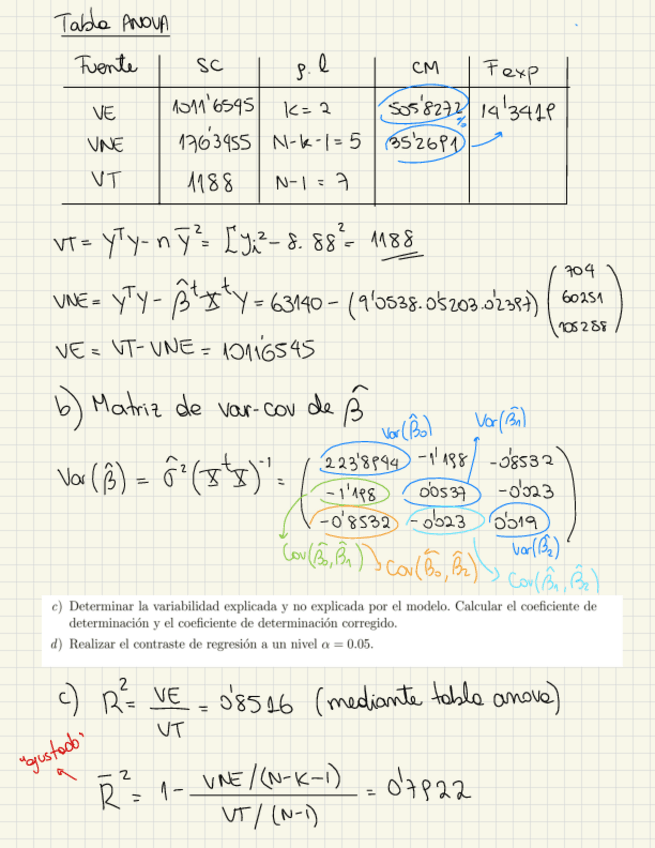 Tabla ANOVA
Fuente SC g.l CM Fexp
VE 1011'6545 K=2 505'8272 14'3419
VNE 176'3455 N-k-1=5 35'2691
VT 1188 N-1=7
VT = YᵀY - n ȳ² = Σyᵢ² - 8·88² = 1188
VNE = YᵀY - β̂ᵗXᵗY = 63140 - (9'0538. 0'5203. 0'2397) (704 60251 105258)
VE = VT - VNE = 1011'6545
b) Matriz de var-cov de β̂
Var(β̂₀) Var(β̂₁)
Var(β̂) = σ̂²(XᵗX)⁻¹ = (223'8944 -1'198 -0'8532
-1'198 0'0537 -0'023
-0'8532 -0'023 0'019)
Var(β̂₂)
Cov(β̂₀,β̂₁) Cov(β̂₀,β̂₂) Cov(β̂₁,β̂₂)
c) Determinar la variabilidad explicada y no explicada por el modelo. Calcular el coeficiente de
determinación y el coeficiente de determinación corregido.
d) Realizar el contraste de regresión a un nivel α = 0.05.
c) R² = VE/VT = 0'8516 (mediante tabla anova)
"ajustado"
R̄² = 1 - VNE/(N-K-1) / VT/(N-1) = 0'7922